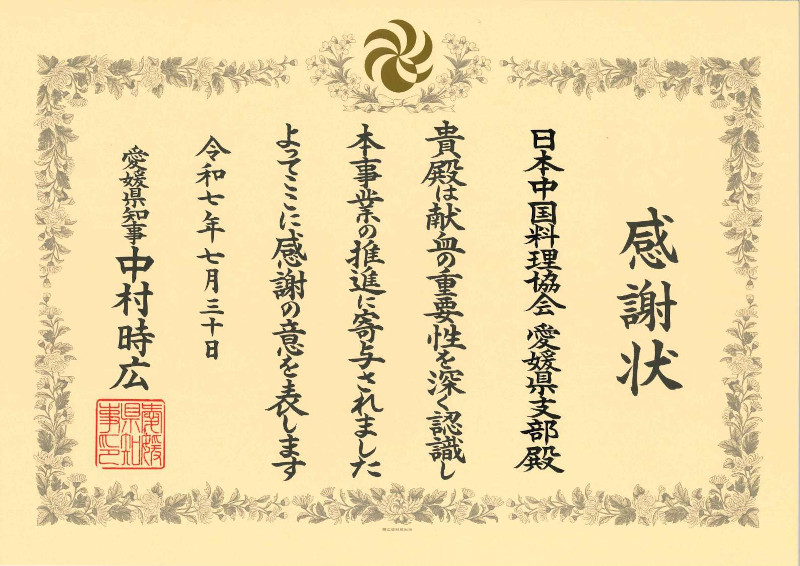 感謝状
日本中国料理協会 愛媛県支部殿
貴殿は献血の重要性を深く認識し
本事業の推進に寄与されました
よってここに感謝の意を表します
令和七年七月三十日
愛媛県知事 中村時広
愛媛県知事印